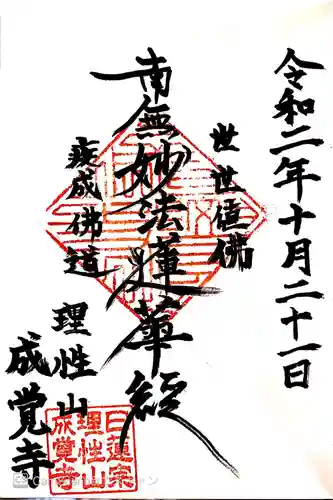 令和二年十月二十一日
世世値佛
南無妙法蓮華経
疾成佛道
理性山
成覚寺
日蓮宗
理性山
成覚寺